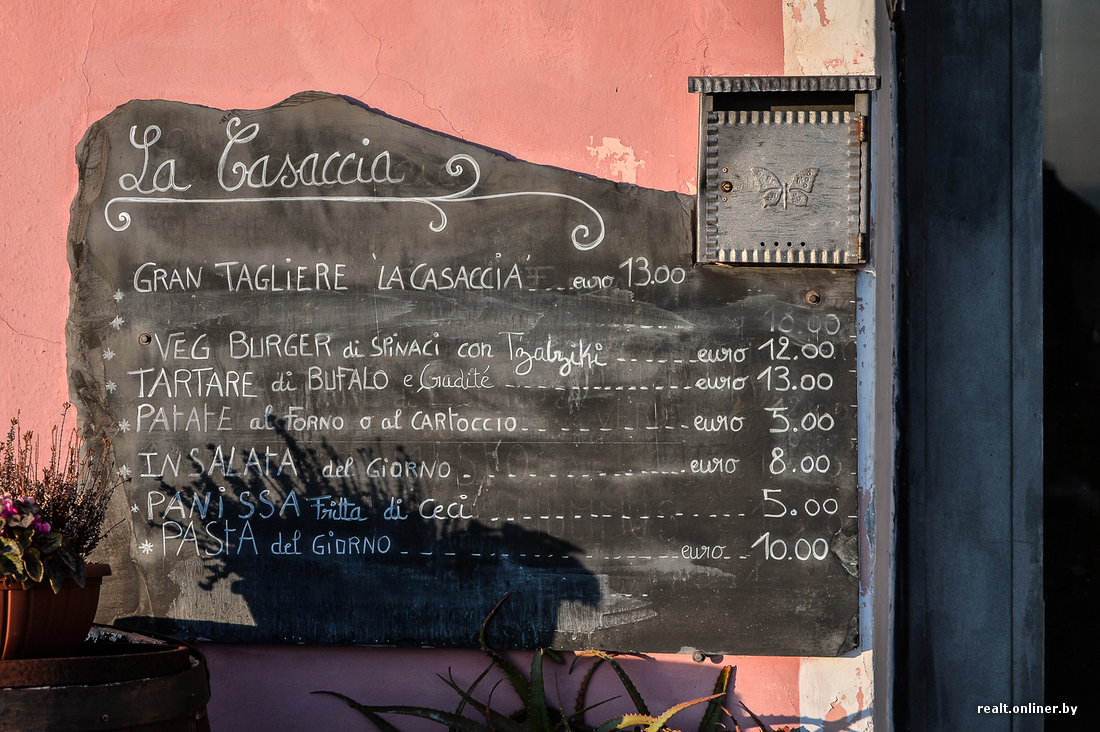 La Casaccia
GRAN TAGLIERE 'LA CASACCIA' euro 13.00
10.00
VEG BURGER di SPINACI con Tzatziki euro 12.00
TARTARE di BUFALO e Crudité euro 13.00
PATATE al FORNO o al CARTOCCIO euro 5.00
INSALATA del GIORNO euro 8.00
PANISSA Fritta di Ceci 5.00
PASTA del GIORNO euro 10.00
realt.onliner.by